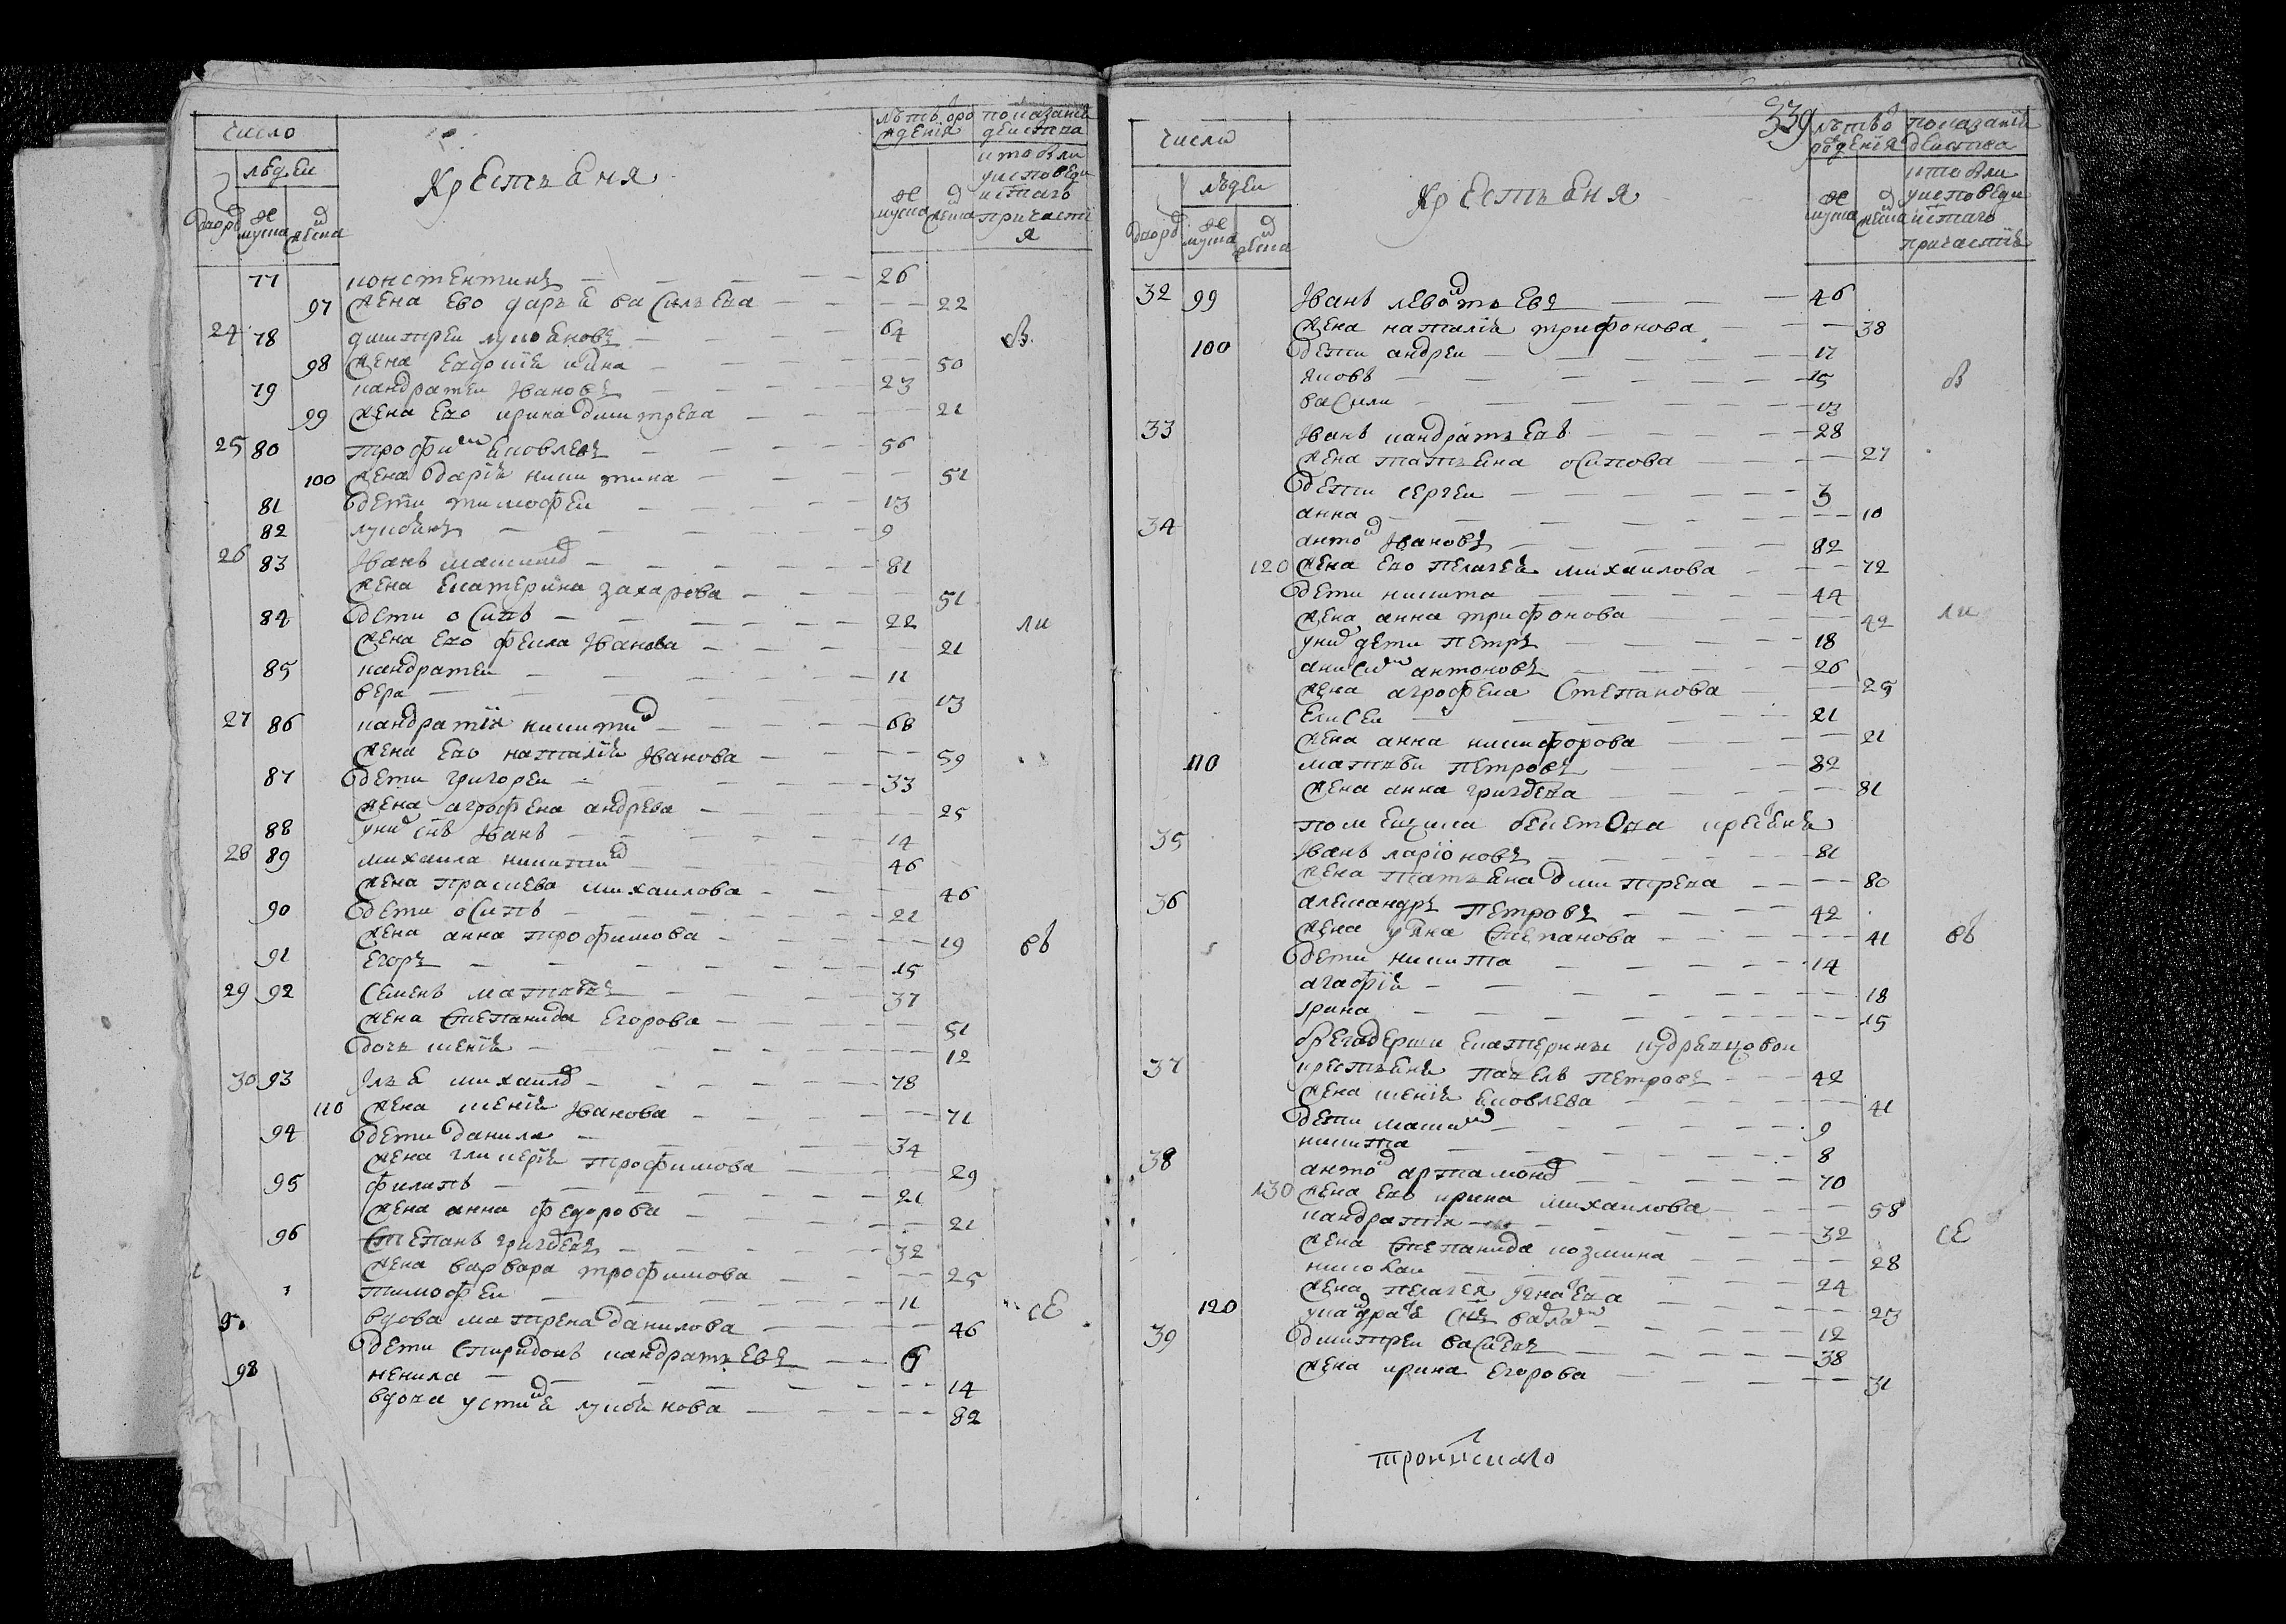 число
людеи
дворо
мужеска
женска
крестьяня
лѣтъ оро
ждения
мужеска
женска
показание
действа
кто были
у исповеди
и стаго
причасти
я
77 константинъ 26
97 жена ево дарья василъева 22
24 78 дмитреи лукьяновъ 64
98 жена евдокия 50
79 кандратеи Ивановъ 23
99 жена ево ирина дмитрева 21
25 80 трофим яковлевъ 56
100 жена дария никитина 51
81 дети тимофеи 13
82 лукьянъ 9
26 83 Иванъ 81
жена екатерина захарова 51
84 дети осипъ 22
жена ево феkла Иванова 21
85 кандратеи 11
вера 13
27 86 кандратия никитин 68
жена ево наталия Иванова 59
87 дети григореи 33
жена агрофена андрева 25
88 у них снъ Иванъ 14
28 89 михаила никитин 46
жена прасkева михаилова 46
90 дети осипъ 21
жена анна трофимова 19
91 егоръ 15
29 92 семенъ матвѣевъ 37
жена степанида егорова 51
дочь ксения 12
30 93 Илья михаилов 78
110 жена ксения Иванова 71
94 дети данила 34
жена гликерия трофимова 29
95 филипъ 21
жена анна федорова 21
96 степанъ григоревъ 32
жена варвара трофимова 25
тимофеи 11
вдова матрена данилова 46
дети спиридонъ кандратьевъ 6
98 ненила 14
вдова устинья лукьянова 82
в
ли
въ
се
339
число
людеи
дворо
мужеска
женска
крестьяня
лѣтъ о
рождения
мужеска
женска
показание
действа
кто были
у исповеди
и стаго
причастия
32 99 Иванъ левонтьевъ 46
жена наталия трифонова 38
100 дети андреи 17
яковъ 15
васили 13
33 Иванъ кандратьевъ 28
жена татьяна осипова 27
дети сергеи 3
анна 10
34 антон Ивановъ 82
120 жена ево пелагея михаилова 72
дети никита 44
жена анна трифонова 42
у них дети петръ 18
анисим антоновъ 26
жена агрофена степанова 25
елисеи 21
жена анна никифорова 21
110 матвѣи петровъ 82
жена анна григорева 81
помещика бекетова крестьяня
35 Иванъ ларионовъ 81
жена татьяна дмитрева 80
36 александръ петровъ 42
жена ульяна степанова 41
дети никита 14
агафия 18
ирина 15
брегадерши екатерины кудрявцовои
37 крестьяня павелъ петровъ 42
жена ксения яковлева 41
дети максим 9
никита 8
38 антон артамонов 70
130 жена ево ирина михаилова 58
кандратия 32
жена степанида козмина 28
николаи 24
жена пелагея игнатева 23
120 у кандратя снъ 12
39 дмитреи василевъ 38
жена ирина егорова 31
в
ли
въ
се
троицкаго